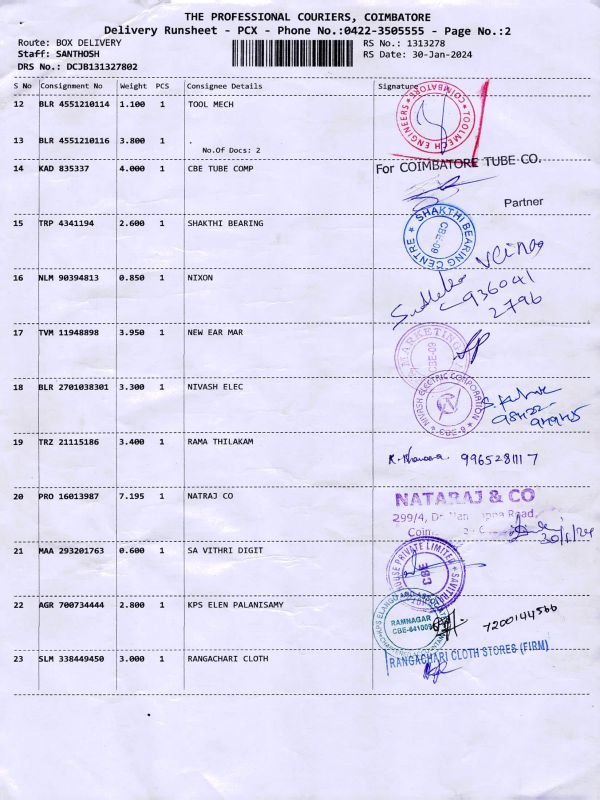 THE PROFESSIONAL COURIERS, COIMBATORE
Delivery Runsheet - PCX - Phone No.:0422-3505555 - Page No.:2
Route: BOX DELIVERY RS No.: 1313278
Staff: SANTHOSH RS Date: 30-Jan-2024
DRS No.: DCJB131327802
S No Consignment No Weight PCS Consignee Details Signature
12 BLR 4551210114 1.100 1 TOOL MECH
COIMBATORE ★ TOOLMECH ENGINEERS ★
13 BLR 4551210116 3.800 1 .
No.Of Docs: 2
14 KAD 835337 4.000 1 CBE TUBE COMP
For COIMBATORE TUBE CO.
Partner
15 TRP 4341194 2.600 1 SHAKTHI BEARING
SHAKTHI BEARING CENTRE ★ CBE-09
16 NLM 90394813 0.850 1 NIXON
936041
2796
17 TVM 11948898 3.950 1 NEW EAR MAR
MARKETING
CBE-09
18 BLR 2701038301 3.300 1 NIVASH ELEC
NIVASH ELECTRIC CORPORATION
19 TRZ 21115186 3.400 1 RAMA THILAKAM
9965281117
20 PRO 16013987 7.195 1 NATRAJ CO
NATARAJ & CO
299/4, Road,
Coim
30/1/24
21 MAA 293201763 0.600 1 SA VITHRI DIGIT
HOUSE PRIVATE LIMITED ★
383
22 AGR 700734444 2.800 1 KPS ELEN PALANISAMY
RAMNAGAR
7200144566
23 SLM 338449450 3.000 1 RANGACHARI CLOTH
RANGACHARI CLOTH STORES (FIRM)